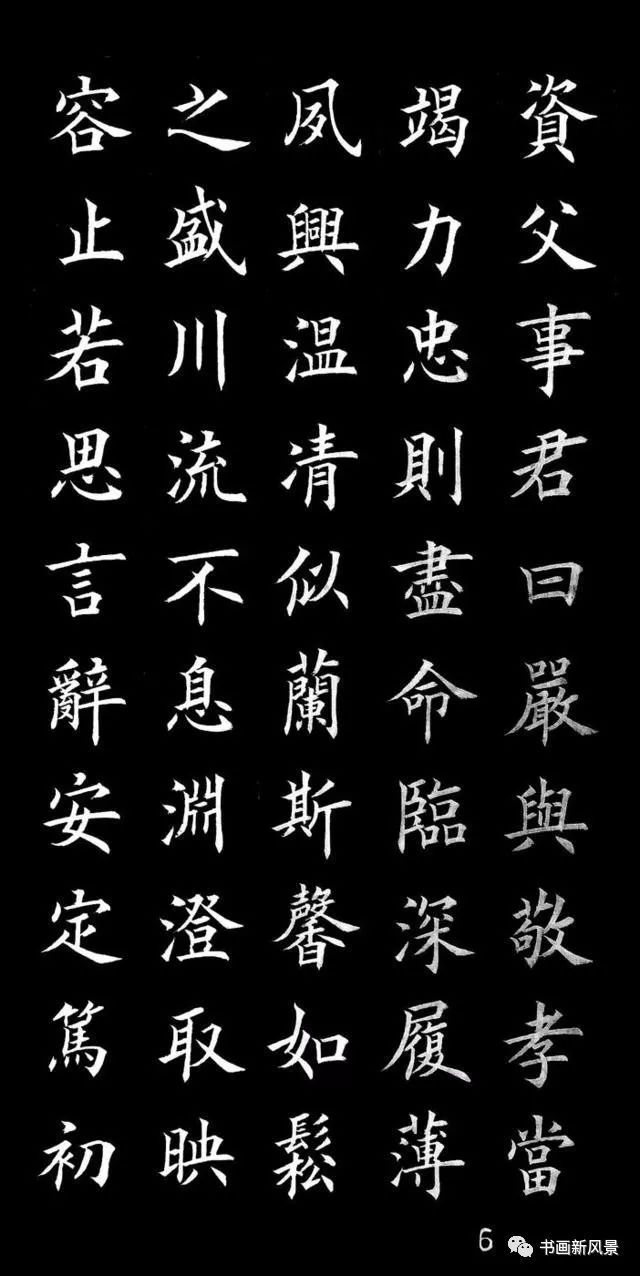 資父事君曰嚴與敬孝當
竭力忠則盡命臨深履薄
夙興温凊似蘭斯馨如鬆
之盛川流不息淵澄取映
容止若思言辭安定篤初
6
书画新风景